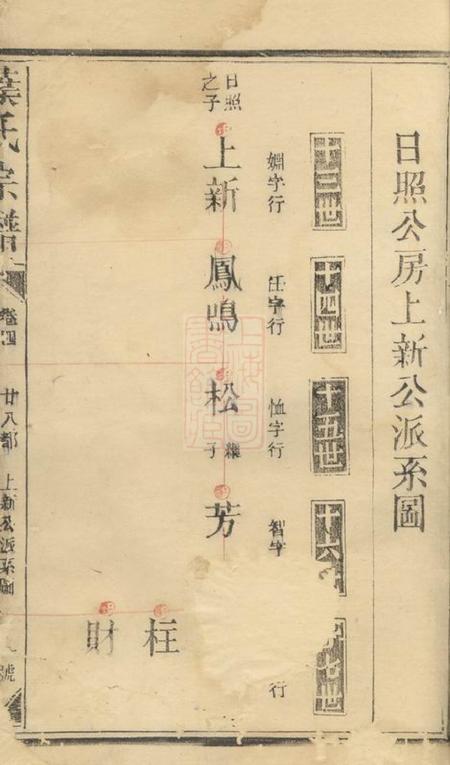 日照公房上新公派系圖
十三世
十四世
十五世
十六
七世
婣字行
任字行
恤字行
智字
行
日照
之子
上新
鳳鳴
松
繼
子
芳
柱
財
葉氏宗譜
卷四
廿八都
上新公派系圖
號